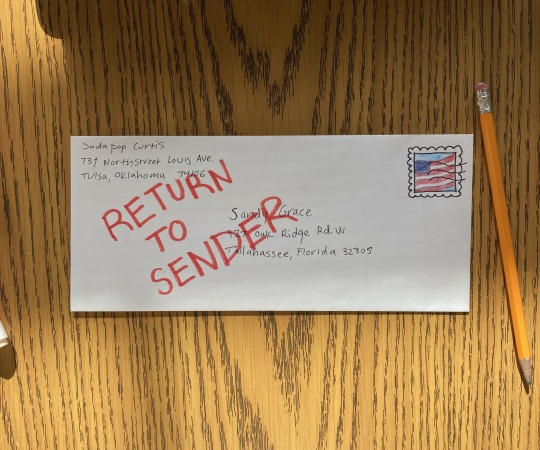 Sodapop Curtis
731 Northstreet Louis Ave.
Tulsa, Oklahoma 74106
RETURN
TO
SENDER
Sandy Grace
Oak Ridge Rd. W
Tallahassee, Florida 32305